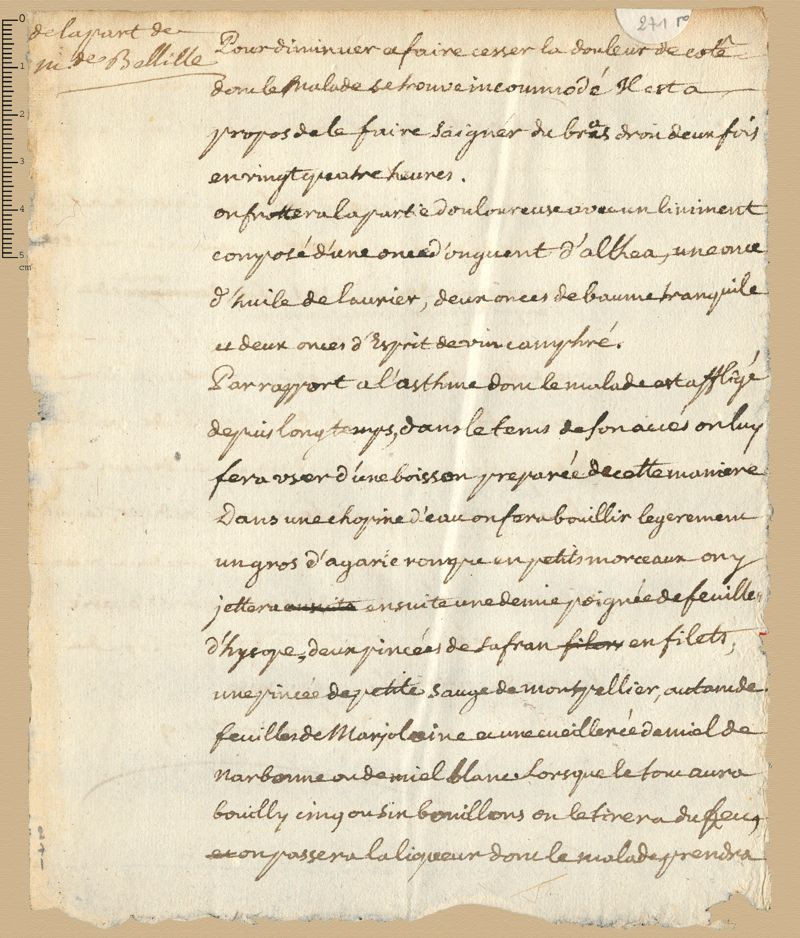 271 r°
de la part de
m. de Bellille
Pour diminuer et faire cesser la douleur de coté
dont le malade se trouve incommodé Il est a
propos de le faire saigner du bras droit deux fois
en vingt quatre heures.
on frottera la partie douloureuse avec un liniment
composé d'une once d'onguent d'althea, une once
d'huile de laurier, deux onces de baume tranquile
et deux onces d'Esprit de vin camphré.
Par rapport a l'asthme dont le malade est affligé
depuis long temps, dans le tems de son accés on luy
fera user d'une boisson preparée de cette maniere
Dans une chopine d'eau on fera bouillir legerement
un gros d'agaric rompu en petits morceaux on y
jettera ensuite une demie poignée de feuilles
d'hysope, deux pincées de safran en filets,
une pincée de petite sauge de montpellier, autant de
feuilles de Marjolaine et une cueillerée de miel de
Narbonne ou de miel blanc lorsque le tout aura
bouilly cinq ou six bouillons on le tirera du feu,
et on passera la liqueur dont le malade prendra